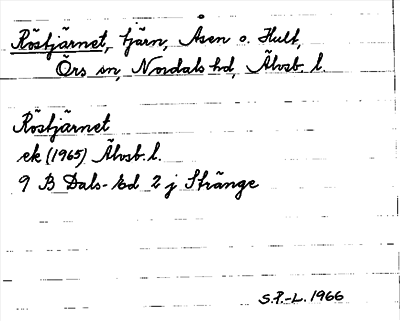 Röstjärnet, tjärn, Åsen o. Hult,
Örs sn, Nordals hd, Älvsb. l.
Röstjärnet
ek (1965) Älvsb. l.
9 B Dals-Ed 2 j Stränge
S.P.-L. 1966